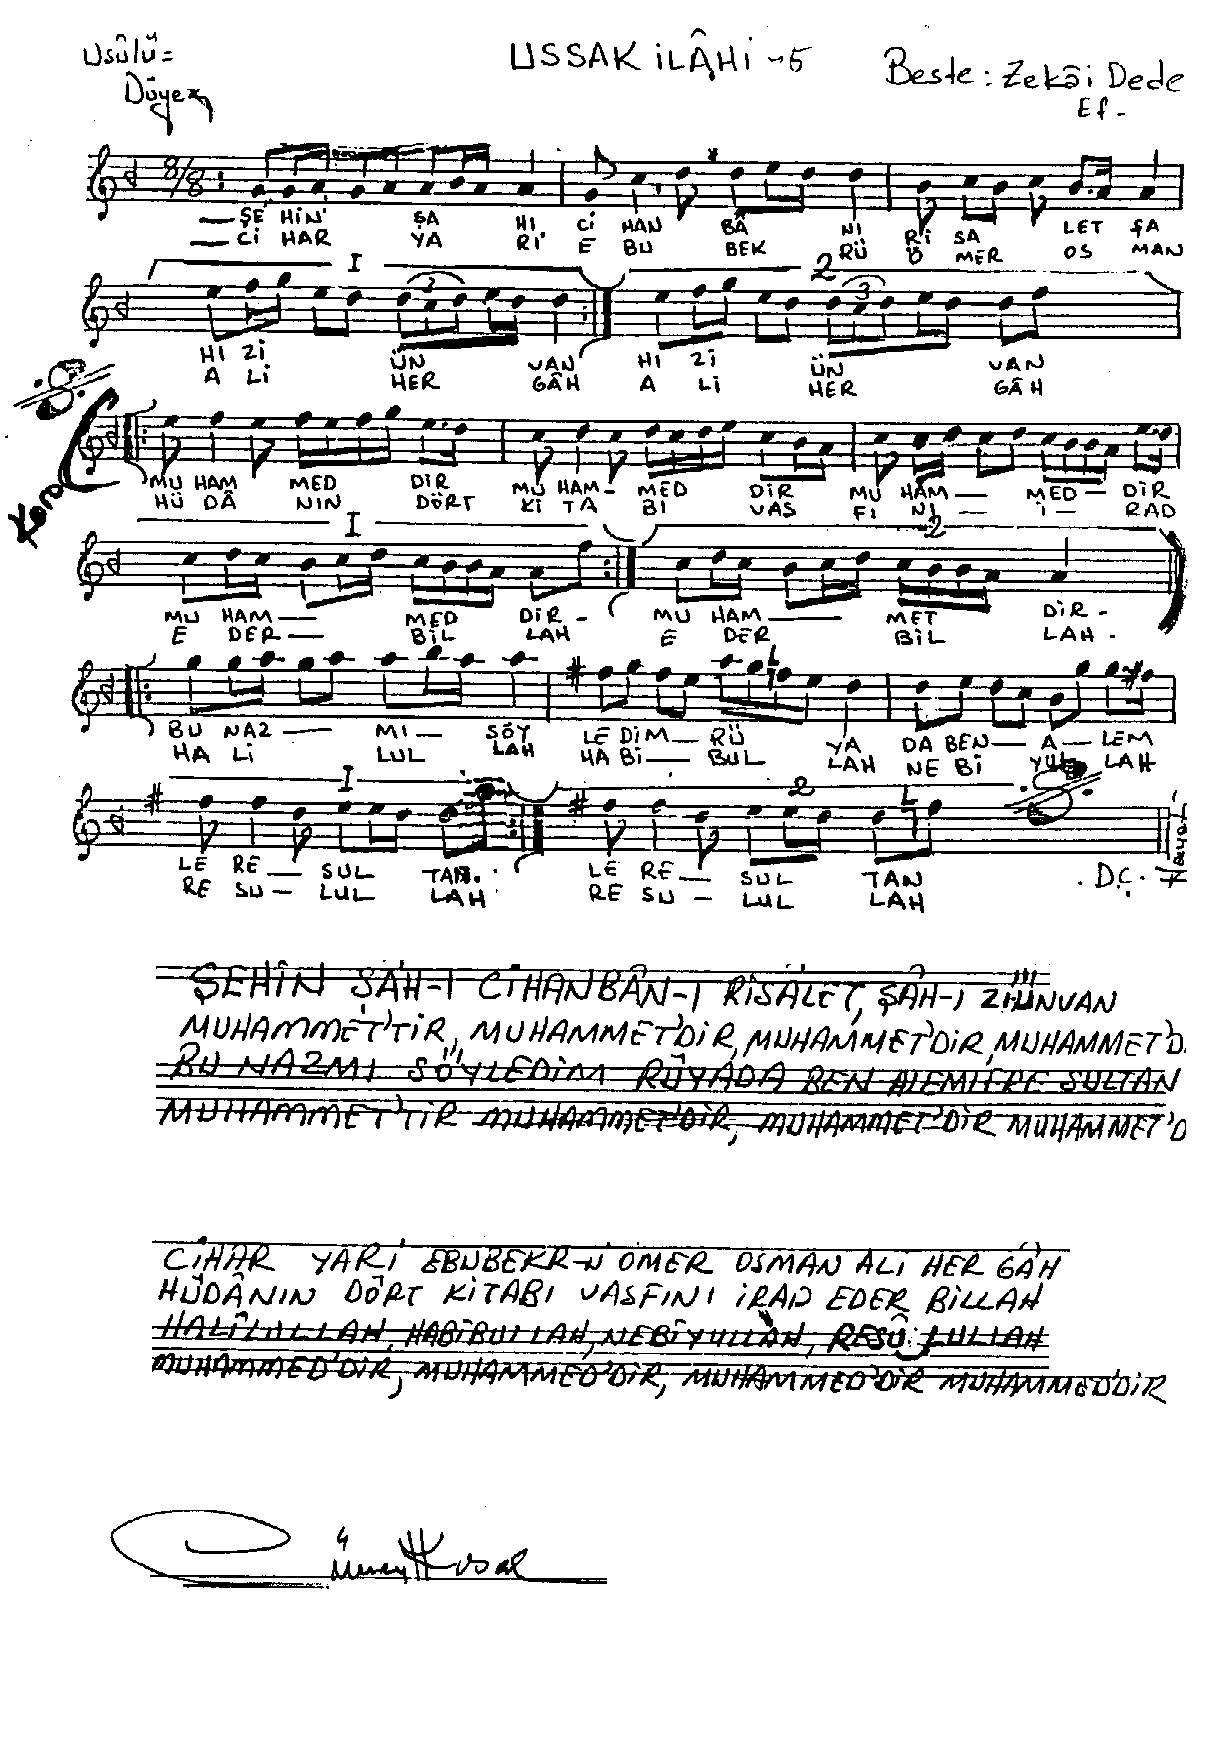 Usûlü=
Düyek
USSAK İLÂHİ -5
Beste: Zekâi Dede
Ef-
8/8
ŞE HİN ŞA HI Cİ HAN BÂ NI Rİ SA LET ŞA
Cİ HAR YA Rİ E BU BEK RÜ Ö MER OS MAN
I 2
3 3
HI Zİ ÜN VAN HI Zİ ÜN VAN
A Lİ HER GÂH A Lİ HER GÂH
Koro
MU HAM MED DİR MU HAM- MED DİR MU HAM— MED— DİR
HÜ DÂ NIN DÖRT Kİ TA BI VAS FI NI — İ — RAD
I 2
MU HAM— MED DİR- MU HAM— MET DİR-
E DER— BİL LAH E DER BİL LAH-
BU NAZ— MI— SÖY LE DİM— RÜ YA DA BEN— A— LEM
HA Lİ LUL LAH HA Bİ— BUL LAH NE Bİ YUL LAH
I 2
LE RE— SUL TAN. LE RE— SUL TAN
RE SU— LUL LAH RE SU— LUL LAH
. D.C. .
ŞEHİN ŞÂH-I CİHANBÂN-I RİSÂLET, ŞÂH-I ZİÜNVAN
MUHAMMET'TİR, MUHAMMET'DİR, MUHAMMET'DİR, MUHAMMET'D
BU NAZMI SÖYLEDİM RÜYADA BEN ALEMLERE SULTAN
MUHAMMET'TİR MUHAMMET'DİR, MUHAMMET'DİR MUHAMMET'D
CİHAR YARİ EBUBEKR-Ü ÖMER OSMAN ALİ HER GÂH
HÜDÂNIN DÖRT KİTABI VASFINI İRAD EDER BİLLAH
HALÎLULLAH, HABİBULLAH, NEBİYULLAH, RESÛLULLAH
MUHAMMED'DİR, MUHAMMED'DİR, MUHAMMED'DİR MUHAMMED'DİR